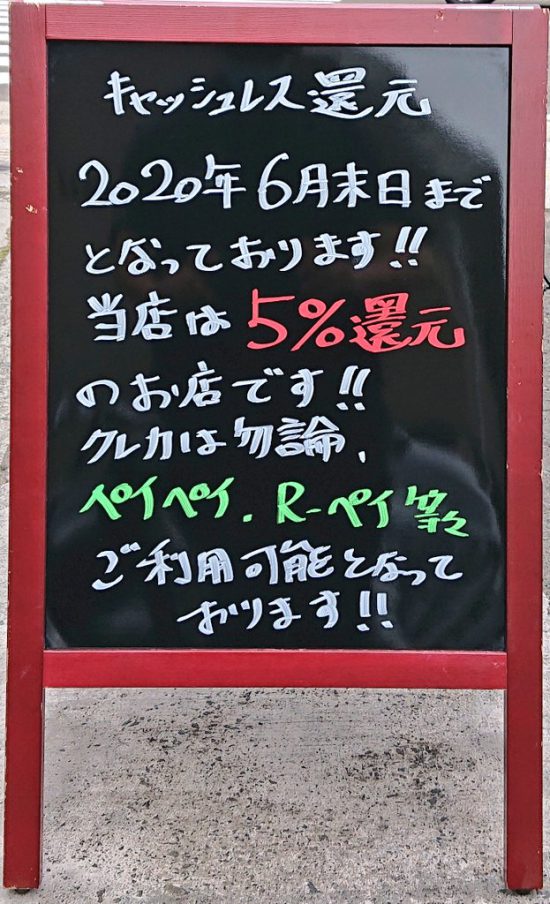 キャッシュレス還元
2020年6月末日まで
となっております!!
当店は5%還元
のお店です!!
クレカは勿論、
ペイペイ.R-ペイ等々
ご利用可能となって
おります!!